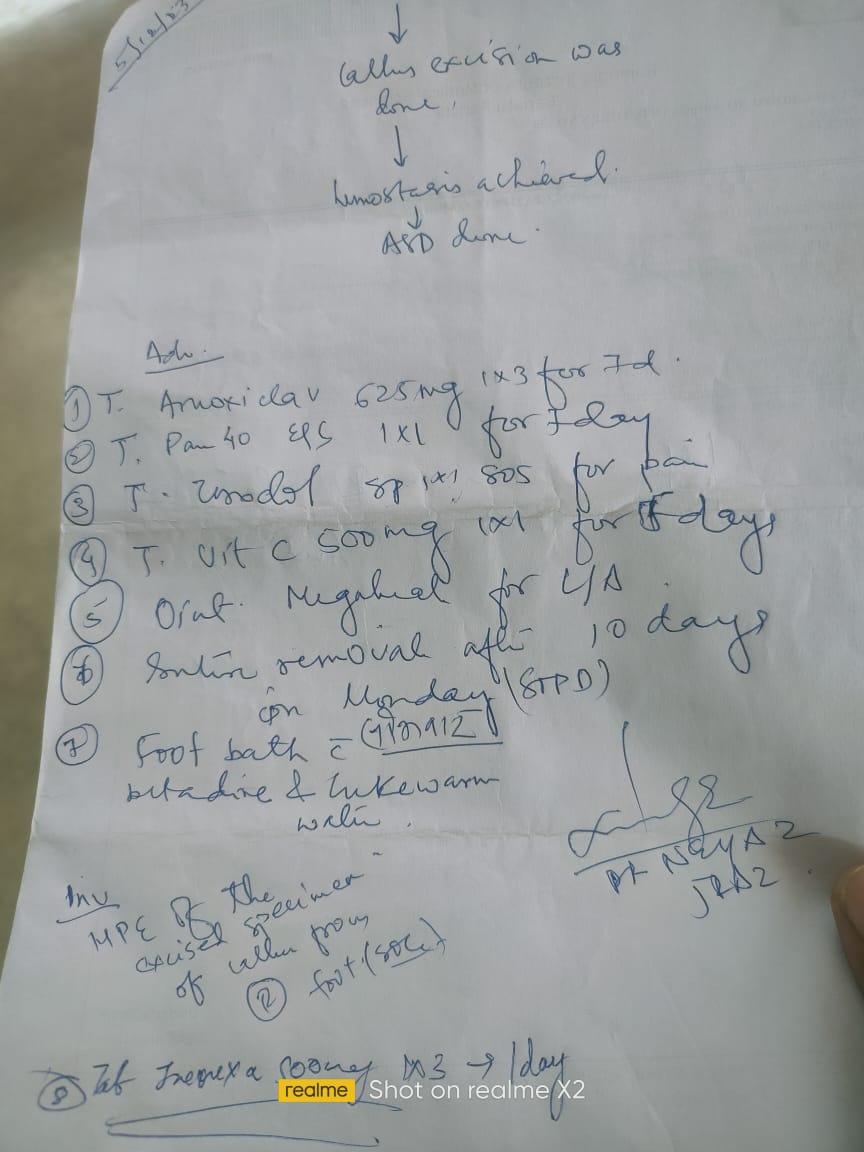 5/12/23
↓
Callus excision was
done.
↓
hemostasis achieved.
↓
ASD done.
Adv.
① T. Amoxiclav 625mg 1x3 for 7d.
② T. Pan 40 1x1 for 7 day
③ T. SP 1x1 SOS for pain
④ T. Vit C 500mg 1x1 for days
⑤ Oint. Megaheal for L/A.
⑥ Suture removal after 10 days
on Monday (STPD)
⑦ Foot bath c̄
betadine & lukewarm
water.
Inv
HPE of the
excised specimen
of callus from
Ⓡ foot (sole)
JRA2
⑧ Tab 500mg 1x3 → 1day
realme Shot on realme X2